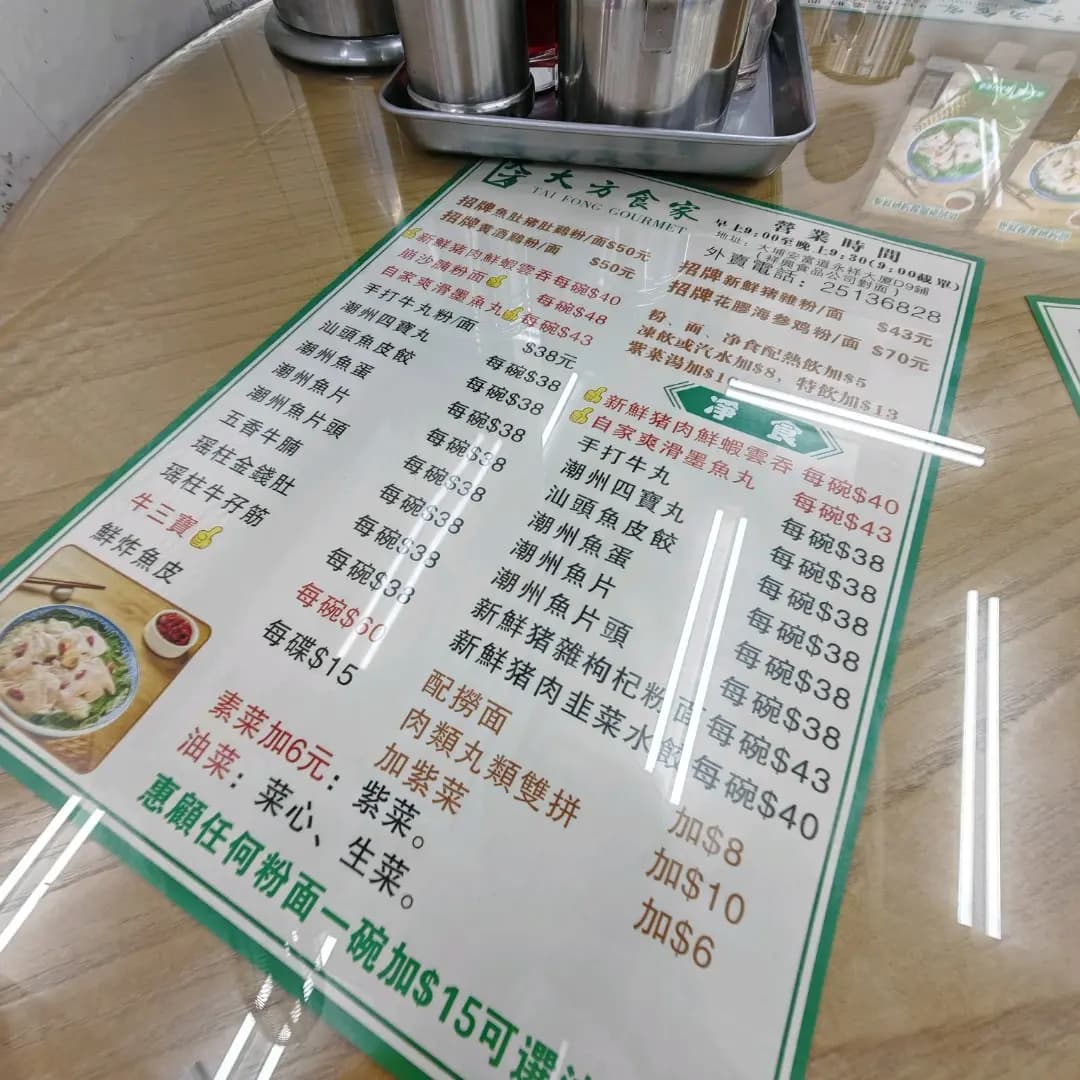 大方食家
TAI FONG GOURMET
營業時間
早上9:00至晚上9:30(9:00截單)
地址：大埔安富道永祥大厦D9鋪
(祥興食品公司對面)
外賣電話：25136828
招牌魚肚豬肚鷄粉/面$50元
招牌黄酒鷄粉/面 $50元
新鮮猪肉鮮蝦雲吞 每碗$40
崩沙腩粉面 每碗$48
自家爽滑墨魚丸 每碗$43
手打牛丸粉/面 $38元
潮州四寶丸 每碗$38
汕頭魚皮餃 每碗$38
潮州魚蛋 每碗$38
潮州魚片 每碗$38
潮州魚片頭 每碗$38
五香牛腩 每碗$38
瑤柱金錢肚 每碗$38
瑤柱牛孖筋
牛三寶 每碗$60
鮮炸魚皮 每碟$15
招牌新鮮猪雜粉/面 $43元
招牌花膠海參鸡粉/面 $70元
粉、面、净食配熱飲加$5
凍飲或汽水加$8，特飲加$13
紫菜湯加$
淨食
新鮮猪肉鮮蝦雲吞 每碗$40
自家爽滑墨魚丸 每碗$43
手打牛丸 每碗$38
潮州四寶丸 每碗$38
汕頭魚皮餃 每碗$38
潮州魚蛋 每碗$38
潮州魚片 每碗$38
潮州魚片頭 每碗$38
新鮮猪雜枸杞粉面 每碗$43
新鮮猪肉韭菜水餃 每碗$40
配撈面 加$8
肉類丸類雙拼 加$10
加紫菜 加$6
素菜加6元：紫菜。
油菜：菜心、生菜。
惠顧任何粉面一碗加$15可選